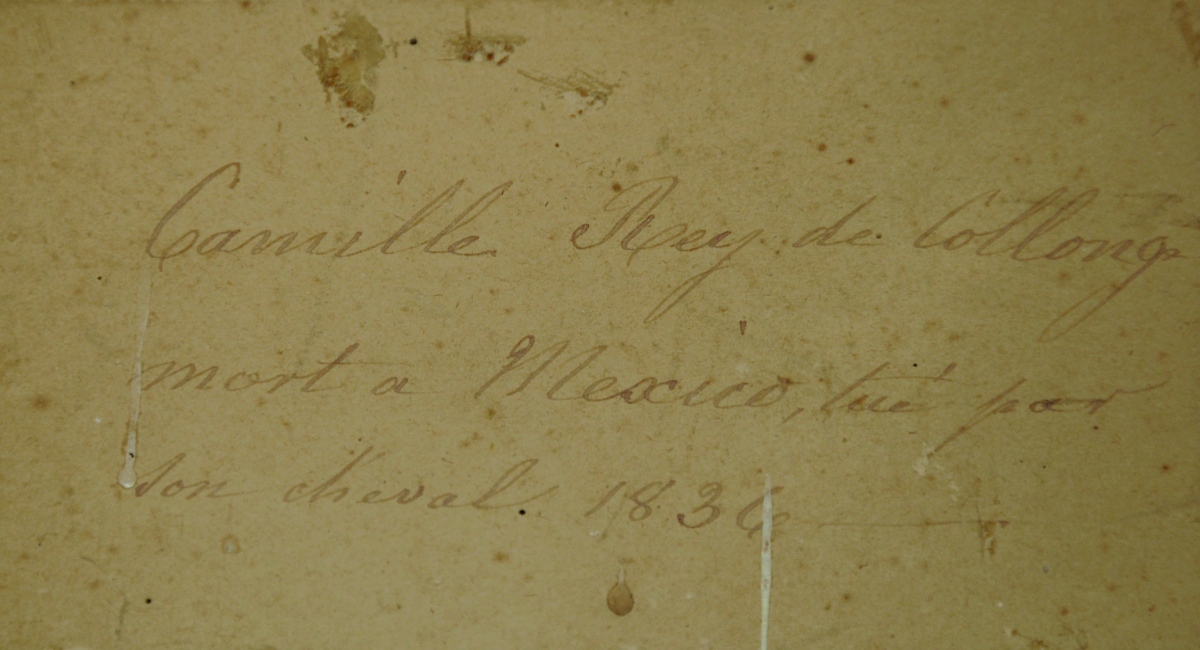 Camille Rey de Collong
mort a Mexico, tué par
son cheval. 1836